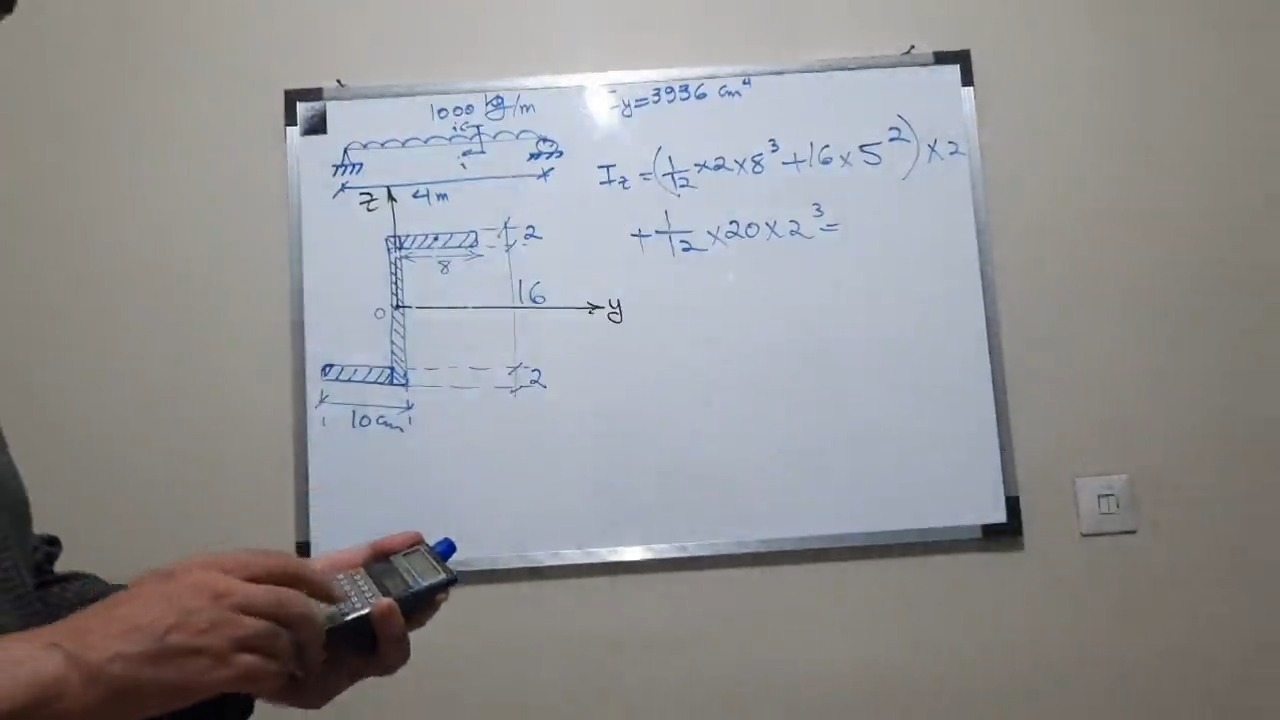 1000 kg/m
4 m
z
2
8
16
y
o
2
10 cm
y=3936 cm⁴
Iz=(1/12×2×8³+16×5²)×2
+1/12×20×2³=